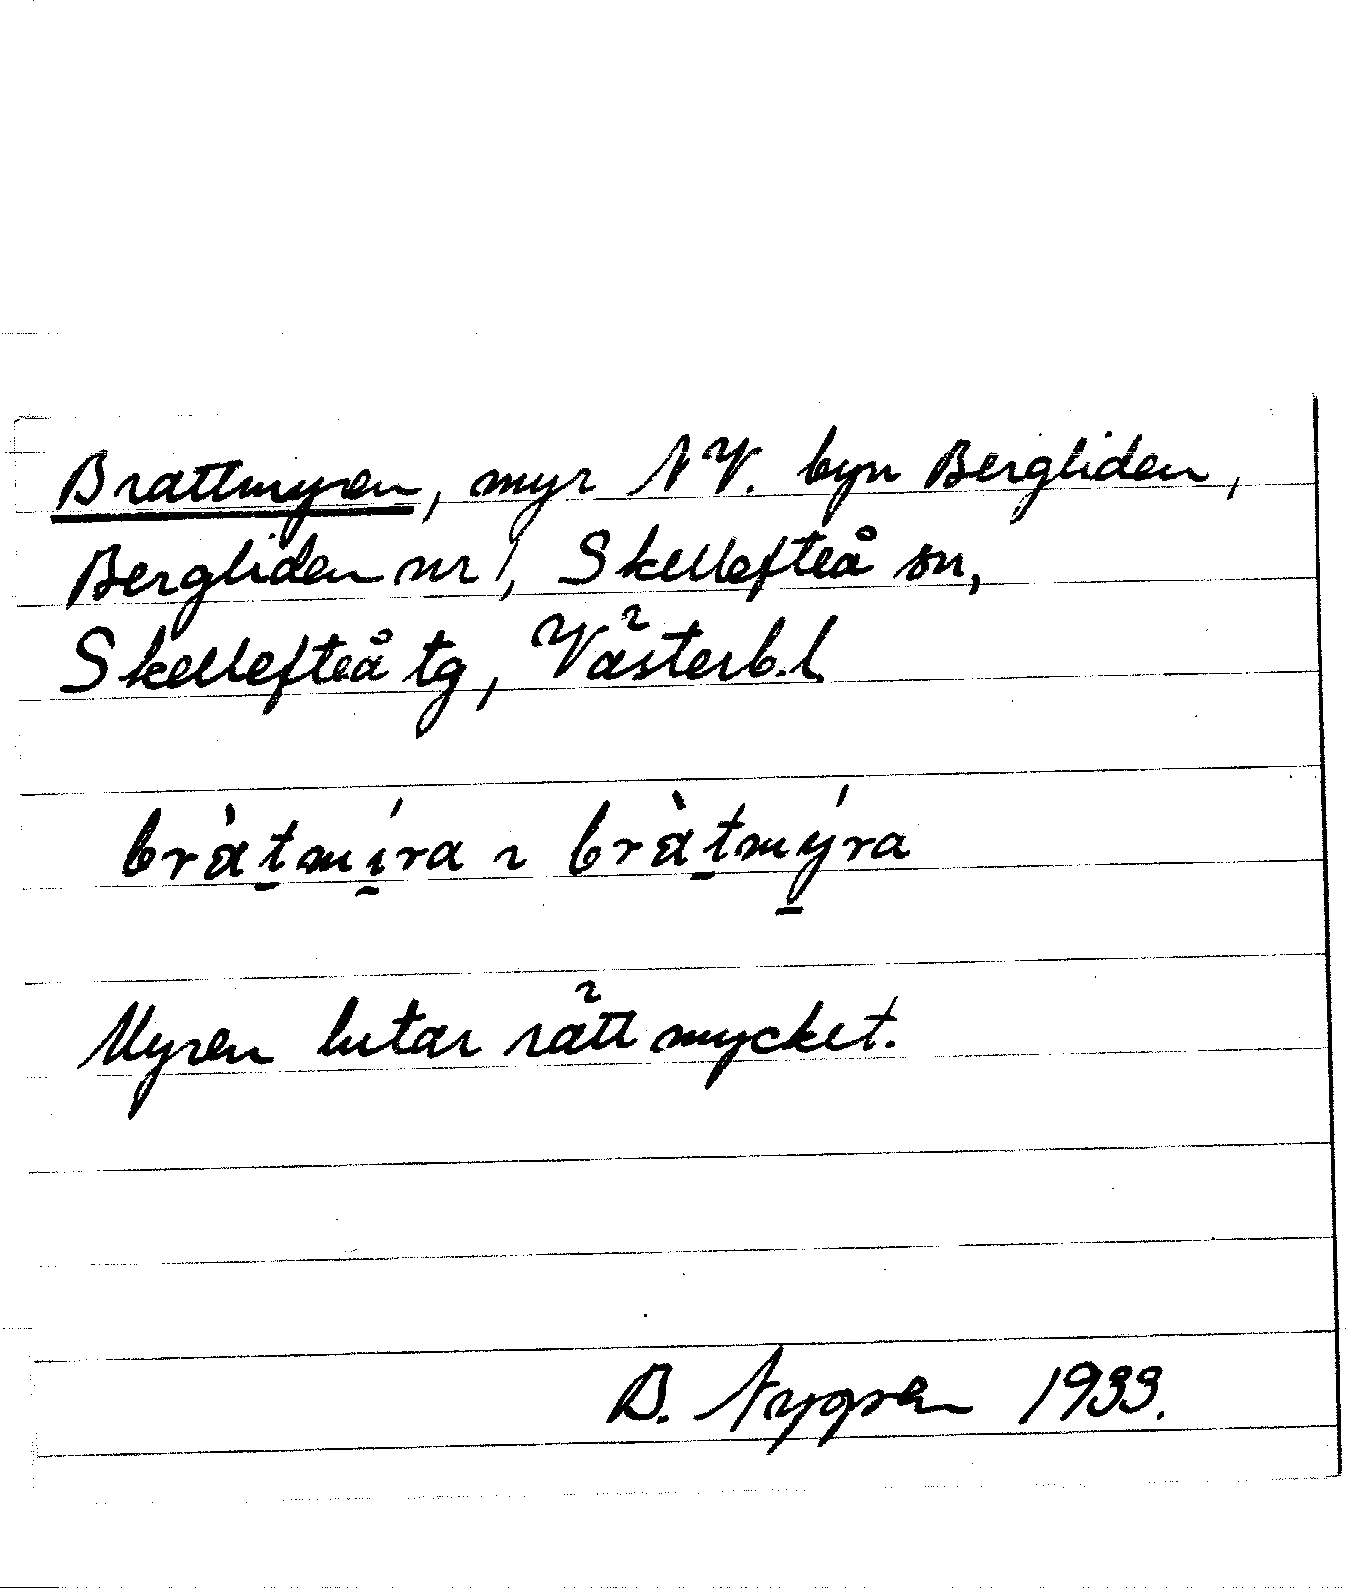 Brattmyren, myr NV. byn Bergliden,
Bergliden nr 1, Skellefteå sn,
Skellefteå tg, Västerb.l.
bràt̠mí̠ra ~ bràt̠mý̠ra
Myren lutar rätt mycket.
B. Nygren 1933.